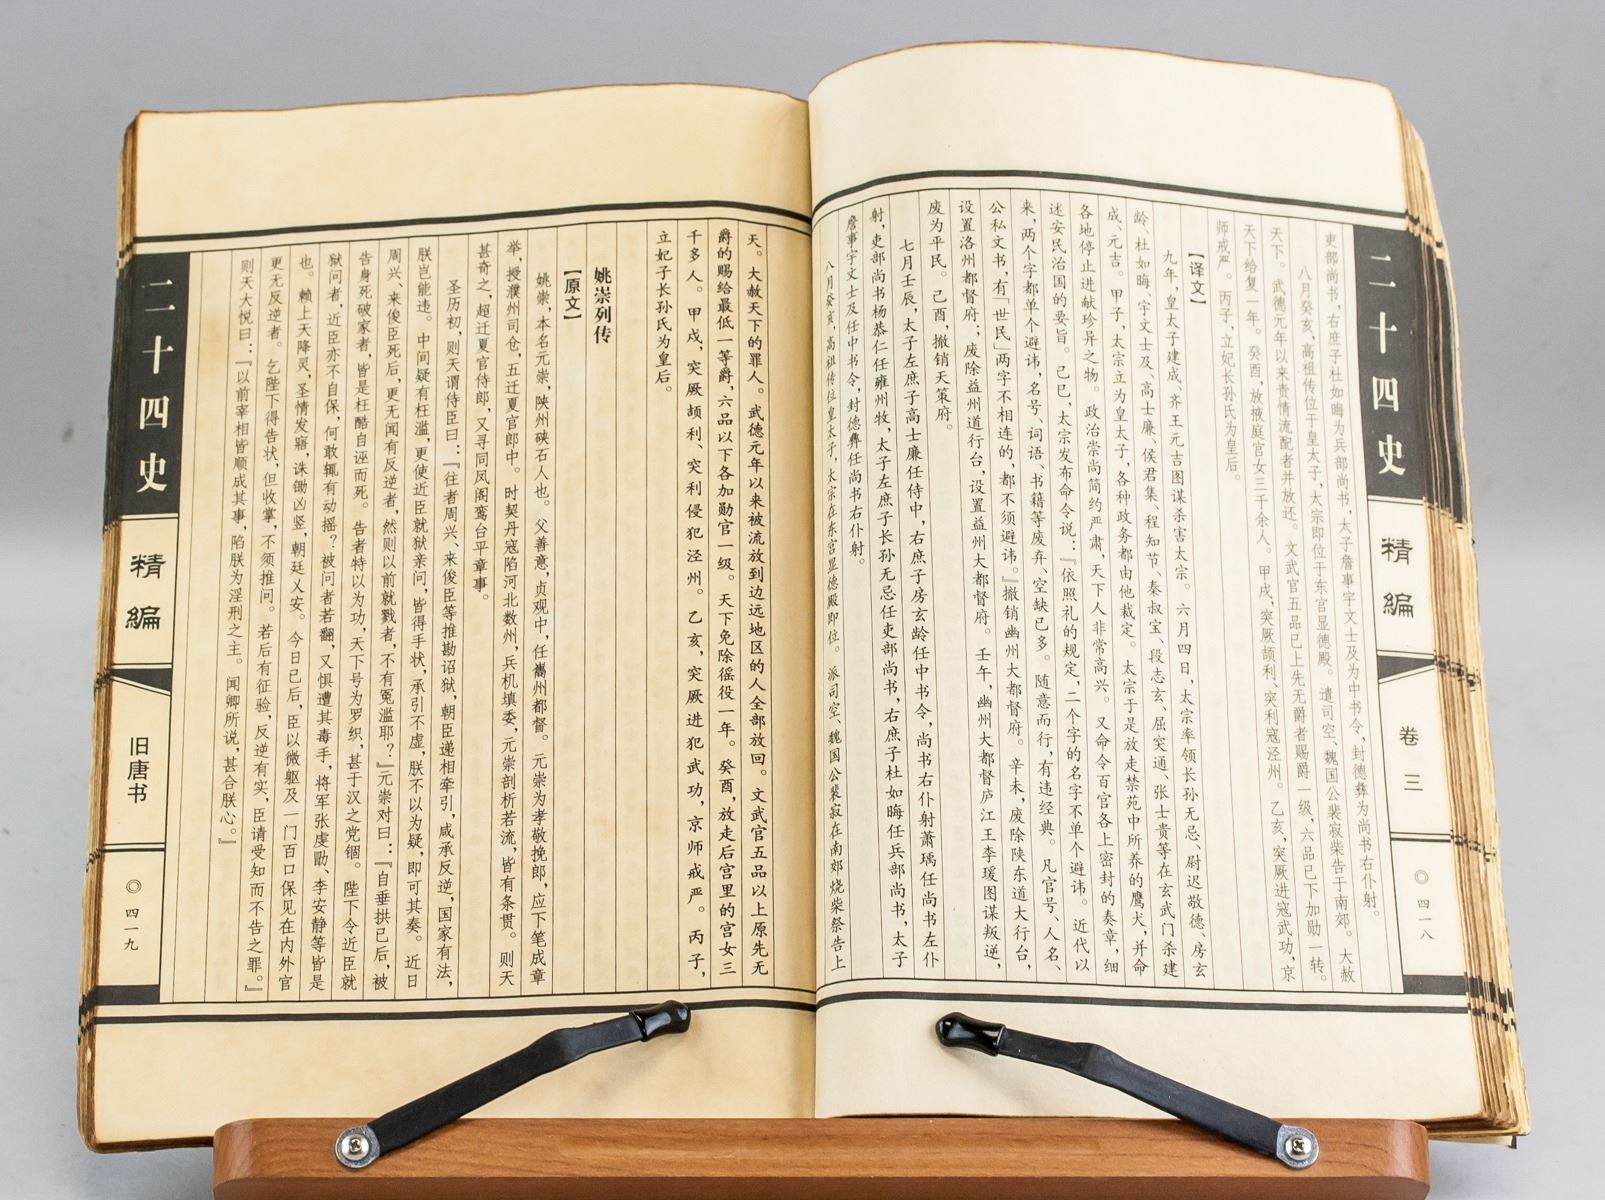 二十四史
精编
卷三
◎四一八
吏部尚书，右庶子杜如晦为兵部尚书，太子詹事宇文士及为中书令，封德彝为尚书右仆射。
八月癸亥，高祖传位于皇太子，太宗即位于东宫显德殿。遣司空、魏国公裴寂柴告于南郊。大赦
天下。武德元年以来责情流配者并放还。文武官五品已上先无爵者赐爵一级，六品已下加勋一转。
天下给复一年。癸酉，放掖庭宫女三千余人。甲戌，突厥颉利、突利寇泾州。乙亥，突厥进寇武功，京
师戒严。丙子，立妃长孙氏为皇后。
【译文】
九年，皇太子建成、齐王元吉图谋杀害太宗。六月四日，太宗率领长孙无忌、尉迟敬德、房玄
龄、杜如晦、宇文士及、高士廉、侯君集、程知节、秦叔宝、段志玄、屈突通、张士贵等在玄武门杀建
成、元吉。甲子，太宗立为皇太子，各种政务都由他裁定。太宗于是放走禁苑中所养的鹰犬，并命
各地停止进献珍异之物。政治崇尚简约严肃，天下人非常高兴。又命令百官各上密封的奏章，细
述安民治国的要旨。己巳，太宗发布命令说：『依照礼的规定，二个字的名字不单个避讳。近代以
来，两个字都单个避讳，名号、词语、书籍等废弃、空缺已多。随意而行，有违经典。凡官号、人名、
公私文书，有「世民」两字不相连的，都不须避讳。』撤销幽州大都督府。辛未，废除陕东道大行台，
设置洛州都督府；废除益州道行台，设置益州大都督府。壬午，幽州大都督庐江王李瑗图谋叛逆，
废为平民。己酉，撤销天策府。
七月壬辰，太子左庶子高士廉任侍中，右庶子房玄龄任中书令，尚书右仆射萧瑀任尚书左仆
射，吏部尚书杨恭仁任雍州牧，太子左庶子长孙无忌任吏部尚书，右庶子杜如晦任兵部尚书，太子
詹事宇文士及任中书令，封德彝任尚书右仆射。
八月癸亥，高祖传位皇太子，太宗在东宫显德殿即位。派司空、魏国公裴寂在南郊烧柴祭告上
天。大赦天下的罪人。武德元年以来被流放到边远地区的人全部放回。文武官五品以上原先无
爵的赐给最低一等爵，六品以下各加勋官一级。天下免除徭役一年。癸酉，放走后宫里的宫女三
千多人。甲戌，突厥颉利、突利侵犯泾州。乙亥，突厥进犯武功，京师戒严。丙子，
立妃子长孙氏为皇后。
姚崇列传
【原文】
姚崇，本名元崇，陕州硖石人也。父善意，贞观中，任嶲州都督。元崇为孝敬挽郎，应下笔成章
举，授濮州司仓，五迁夏官郎中。时契丹寇陷河北数州，兵机填委，元崇剖析若流，皆有条贯。则天
甚奇之，超迁夏官侍郎，又寻同凤阁鸾台平章事。
圣历初，则天谓侍臣曰：『往者周兴、来俊臣等推勘诏狱，朝臣递相牵引，咸承反逆，国家有法，
朕岂能违。中间疑有枉滥，更使近臣就狱亲问，皆得手状，承引不虚，朕不以为疑，即可其奏。近日
周兴、来俊臣死后，更无闻有反逆者，然则以前就戮者，不有冤滥耶？』元崇对曰：『自垂拱已后，被
告身死破家者，皆是枉酷自诬而死。告者特以为功，天下号为罗织，甚于汉之党锢。陛下令近臣就
狱问者，近臣亦不自保，何敢辄有动摇？被问者若翻，又惧遭其毒手，将军张虔勖、李安静等皆是
也。赖上天降灵，圣情发寤，诛锄凶竖，朝廷乂安。今日已后，臣以微躯及一门百口保见在内外官
更无反逆者。乞陛下得告状，但收掌，不须推问。若后有征验，反逆有实，臣请受知而不告之罪。』
则天大悦曰：『以前宰相皆顺成其事，陷朕为淫刑之主。闻卿所说，甚合朕心。』
二十四史
精编
旧唐书
◎四一九